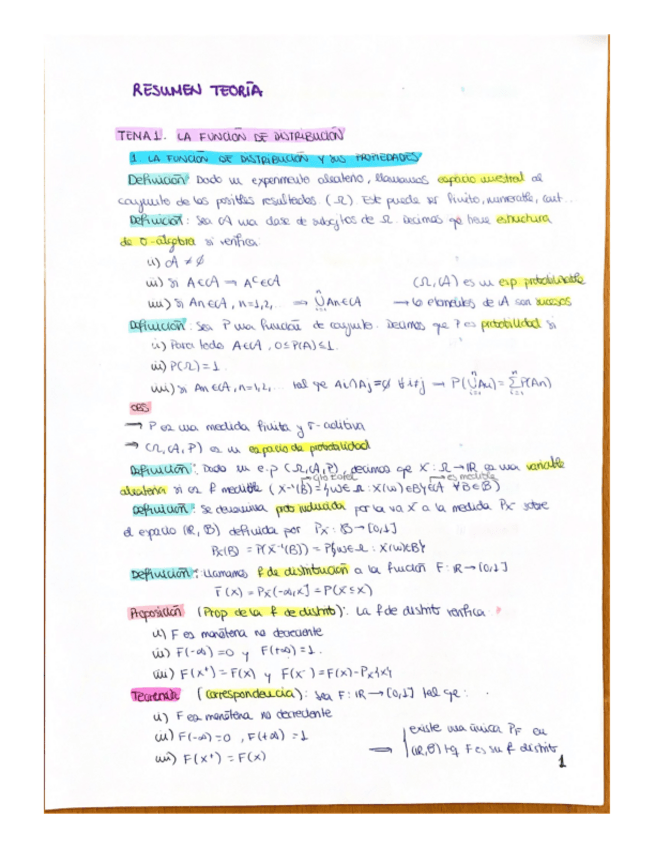 RESUMEN TEORÍA
TEMA 1. LA FUNCIÓN DE DISTRIBUCIÓN
1. LA FUNCIÓN DE DISTRIBUCIÓN Y SUS PROPIEDADES
Definición: Dado un experimento aleatorio, llamamos espacio muestral al
conjunto de los posibles resultados (Ω). Este puede ser finito, numerable, cont...
Definición: Sea A una clase de subcjtos de Ω. Decimos qe tiene estructura
de σ-álgebra si verifica:
i) A ≠ ∅
ii) Si A∈A → Aᶜ∈A
(Ω, A) es un esp. probabilizable
iii) Si An∈A, n=1,2,... ⇒ ⋃An∈A
→ lo elementos de A son sucesos
Definición: Sea P una función de conjunto. Decimos que P es probabilidad si
i) Para todo A∈A, 0≤P(A)≤1.
ii) P(Ω)=1.
iii) si An∈A, n=1,2,... tal qe Ai∩Aj=∅ ∀i≠j → P(⋃An)=∑P(An)
OBS
→ P es una medida finita y σ-aditiva
→ (Ω, A, P) es un espacio de probabilidad
Definición: Dado un e.p (Ω, A, P), decimos qe X: Ω→ℝ es una variable
aleatoria si es f medible (X⁻¹(B)={ω∈Ω: X(ω)∈B}∈A ∀B∈B)
Definición: Se denomina prob inducida por la va X a la medida Px sobre
el espacio (ℝ, B) definida por Px: B→[0,1]
Px(B) = P(X⁻¹(B)) = P{ω∈Ω: X(ω)∈B}
Definición: Llamamos f de distribución a la función F: ℝ→[0,1]
F(x) = Px(-∞,x] = P(X≤x)
Proposición (Prop de la f de distrib): La f de distrib verifica:
i) F es monótona no decreciente
ii) F(-∞)=0 y F(+∞)=1.
iii) F(x⁺)=F(x) y F(x⁻)=F(x)-Px{x}
Teorema (correspondencia): Sea F: ℝ→[0,1] tal qe:
i) F es monótona no decreciente
ii) F(-∞)=0, F(+∞)=1
iii) F(x⁺)=F(x)
⇒ existe una única PF en
(ℝ, B) tq F es su f distrib
1